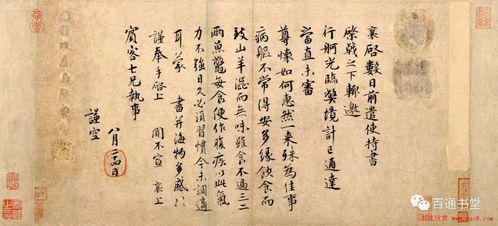 襄啓數日前遣使持書
棨戟之下輒邀
行舸光臨獘境計已通達
當直未審
尊懷如何惠然一來殊為佳事
病軀不常得安多緣飲食而
致山羊澁而無味雖食不過三二
兩魚鼈每食便作腹疾以此氣
力不強日久必須習慣今未調適
耳蒙 書并海物多感〻
謹奉手啓上 聞不宣 襄上
賓客七兄執事
八月二十四日
謹空
百通书堂